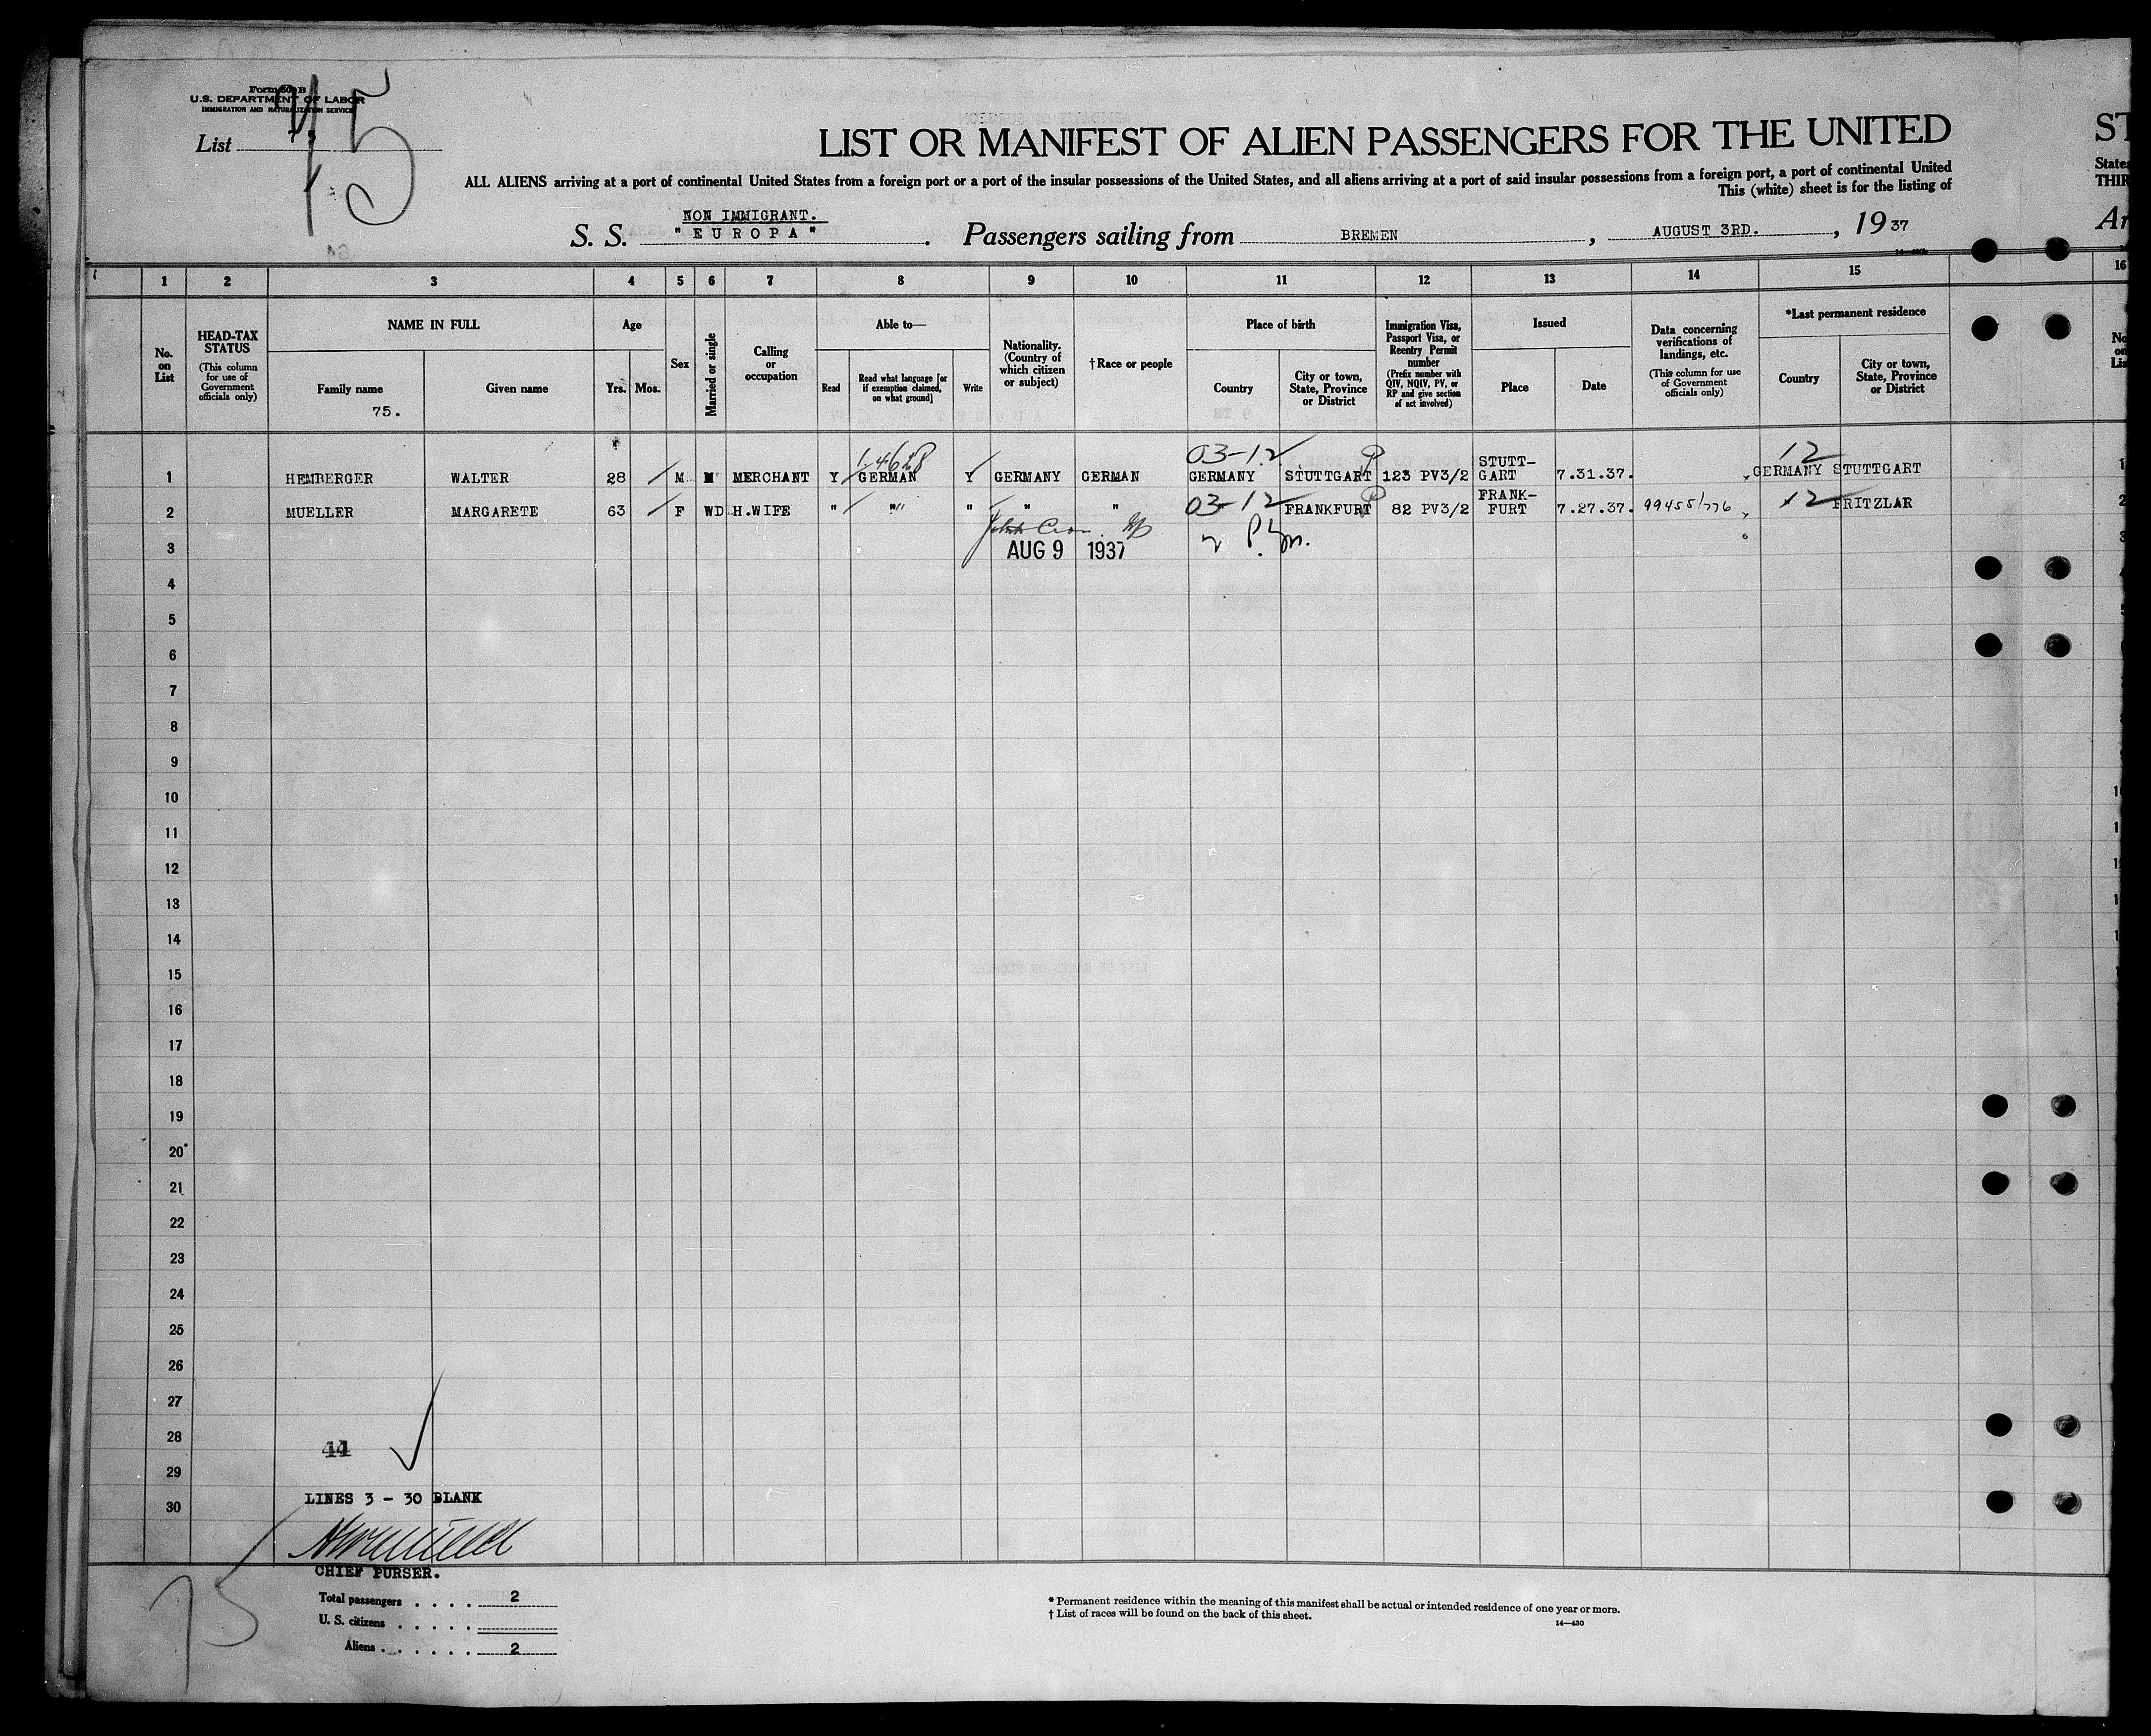 Form 500 B
U.S. DEPARTMENT OF LABOR
IMMIGRATION AND NATURALIZATION SERVICE
List
75
LIST OR MANIFEST OF ALIEN PASSENGERS FOR THE UNITED
ST
ALL ALIENS arriving at a port of continental United States from a foreign port or a port of the insular possessions of the United States, and all aliens arriving at a port of said insular possessions from a foreign port, a port of continental United
States
This (white) sheet is for the listing of
THIR
NON IMMIGRANT.
S. S. "EUROPA". Passengers sailing from BREMEN, AUGUST 3RD., 1937
Ar
1 2 3 4 5 6 7 8 9 10 11 12 13 14 15 16
No. on List
HEAD-TAX STATUS
(This column for use of Government officials only)
NAME IN FULL
Family name
75.
Given name
Age
Yrs. Mos.
Sex
Married or single
Calling or occupation
Able to—
Read
Read what language [or if exemption claimed, on what ground]
Write
Nationality. (Country of which citizen or subject)
† Race or people
Place of birth
Country
City or town, State, Province or District
Immigration Visa, Passport Visa, or Reentry Permit number
(Prefix number with QIV, NQIV, PV, or RP and give section of act involved)
Issued
Place
Date
Data concerning verifications of landings, etc.
(This column for use of Government officials only)
*Last permanent residence
Country
City or town, State, Province or District
03-12 12
1 HEMBERGER WALTER 28 M M MERCHANT Y GERMAN Y GERMANY GERMAN GERMANY STUTTGART 123 PV3/2 STUTT-GART 7.31.37. GERMANY STUTTGART
2 MUELLER MARGARETE 63 F WD H.WIFE " " " " " 03-12 FRANKFURT 82 PV3/2 FRANK-FURT 7.27.37. 99455/776 12 FRITZLAR
3 AUG 9 1937
4
5
6
7
8
9
10
11
12
13
14
15
16
17
18
19
20
21
22
23
24
25
26
27
28
44
29
LINES 3 - 30 BLANK
30
CHIEF PURSER.
75
Total passengers . . . . 2
U. S. citizens . . . . .
Aliens . . . . . . 2
* Permanent residence within the meaning of this manifest shall be actual or intended residence of one year or more.
† List of races will be found on the back of this sheet.
14—430